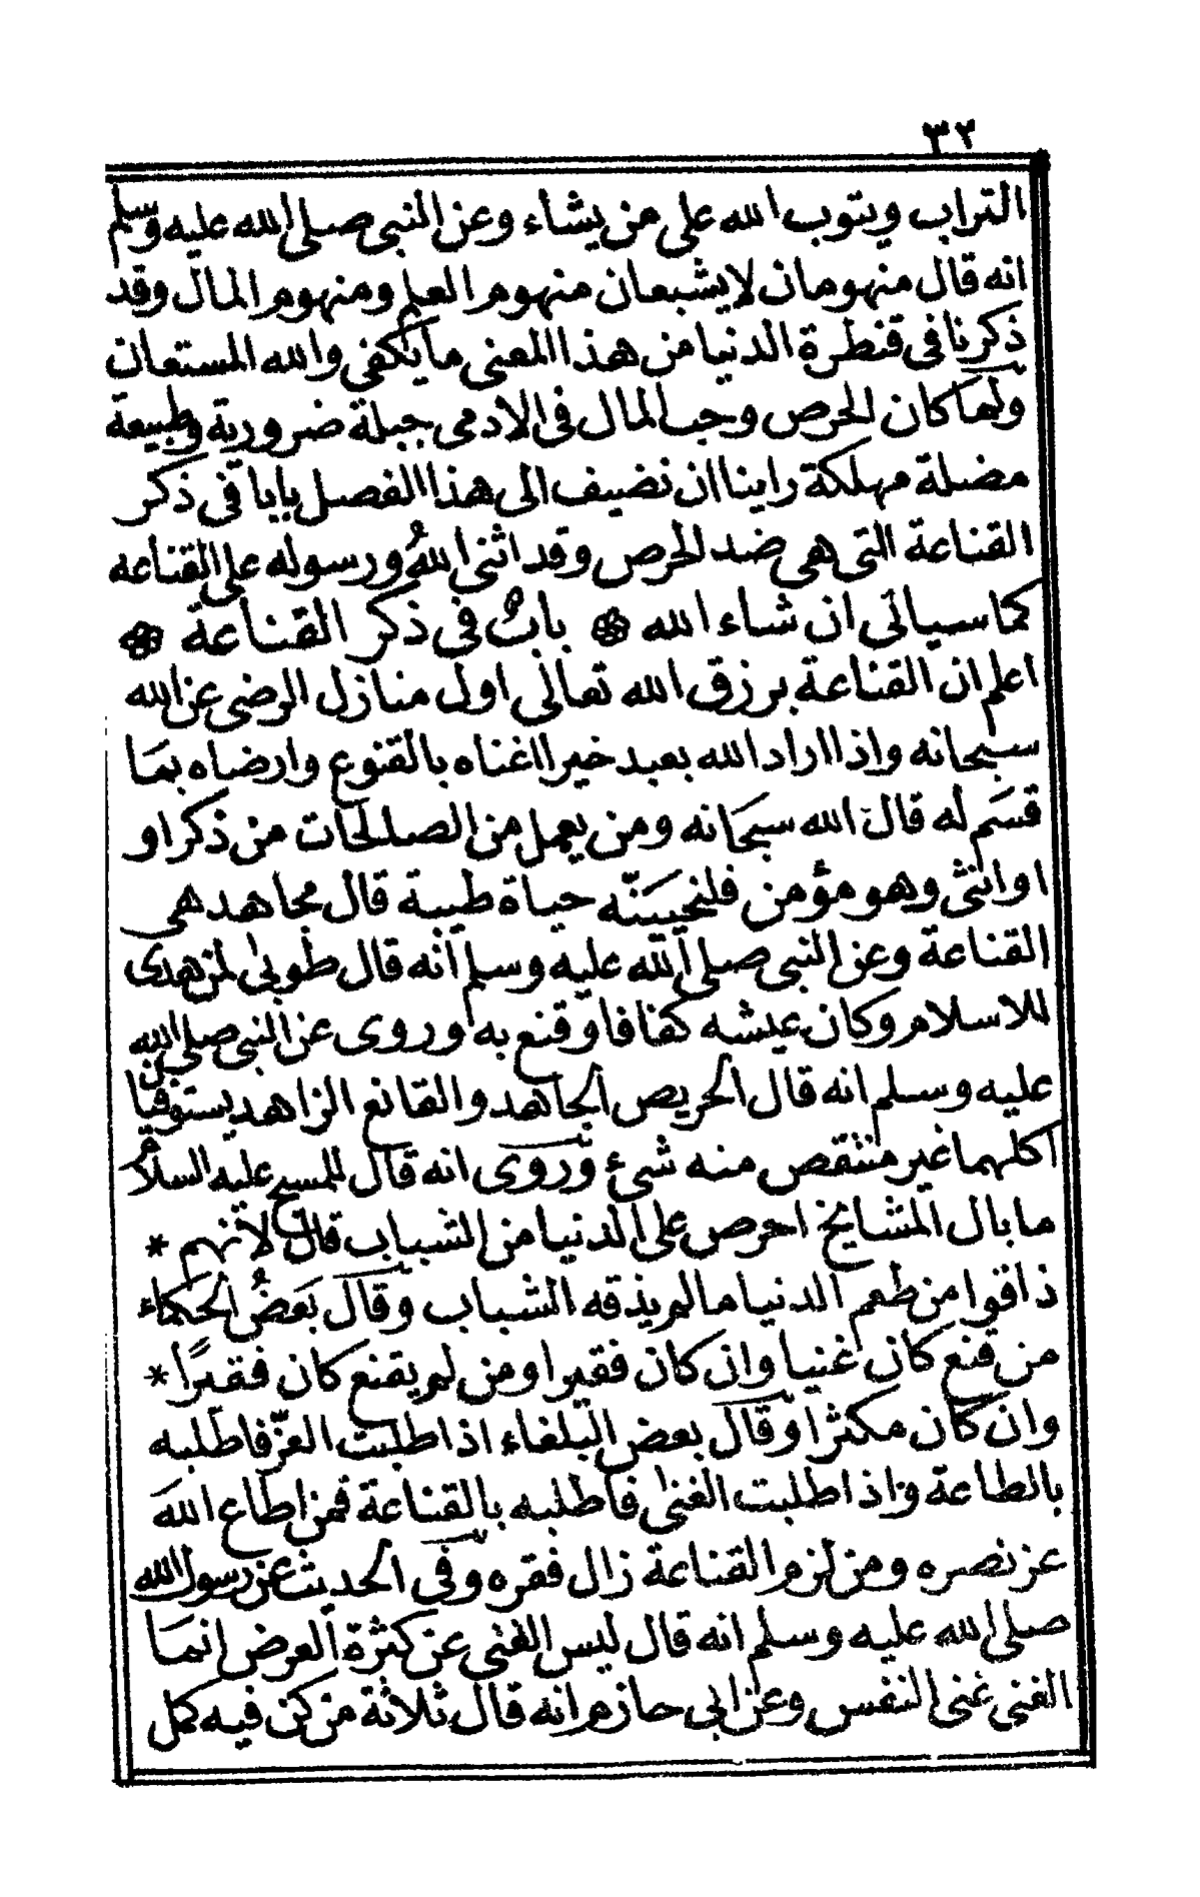 ٣٢
التراب ويتوب الله على من يشاء وعن النبى صلى الله عليه وسلم
انه قال منهومان لا يشبعان منهوم العلم ومنهوم المال وقد
ذكرنا فى قنطرة الدنيا من هذا المعنى ما يكفى والله المستعان
ولما كان الحرص وحب المال فى الادمى جبلة ضرورية وطبيعة
مضلة مهلكة راينا ان نضيف الى هذا الفصل بابا فى ذكر
القناعة التى هى ضد الحرص وقد اثنى اللهُ ورسوله على القناعه
كما سياتى ان شاء الله ۞ بابٌ فى ذكر القناعة ۞
اعلم ان القناعة برزق الله تعالى اول منازل الرضى عن الله
سبحانه واذا اراد الله بعبد خيرا اغناه بالقنوع وارضاه بمَا
قسَم له قال الله سبحَانه ومن يعمل من الصلحات من ذكر او
او انثى وهو مؤمن فلنحيينّه حياة طيبة قال مجاهد هى
القناعة وعن النبى صلى الله عليه وسلم انه قال طوبى لمن هدى
للاسلام وكان عيشه كفافا وقنع به وروى عن النبى صلى الله
عليه وسلم انه قال الحريص الجاهد والقانع الزاهد يستوفيان
اكلهما غير منتقص منه شئ وروى انه قال للمسيح عليه السلام
ما بال المشايخ احرص على الدنيا من الشباب قال لانهم *
ذاقوا من طعم الدنيا ما لم يذقه الشباب وقال بَعضُ الحكماء
من قنع كان غنيا وان كان فقيرا ومن لم يقنع كان فقيرًا *
وان كان مكثرا وقال بعض البلغاء اذا طلبت العزّ فاطلبه
بالطاعة واذا طلبت الغنى فاطلبه بالقناعة فمن اطاع اللهَ
عز نصره ومن لزم القناعة زال فقره وفى الحديث عن رسول الله
صلى الله عليه وسلم انه قال ليس الغنى عن كثرة العرض انمَا
الغنى غنى النفس وعن ابى حازم انه قال ثلاثة من كن فيه كمل